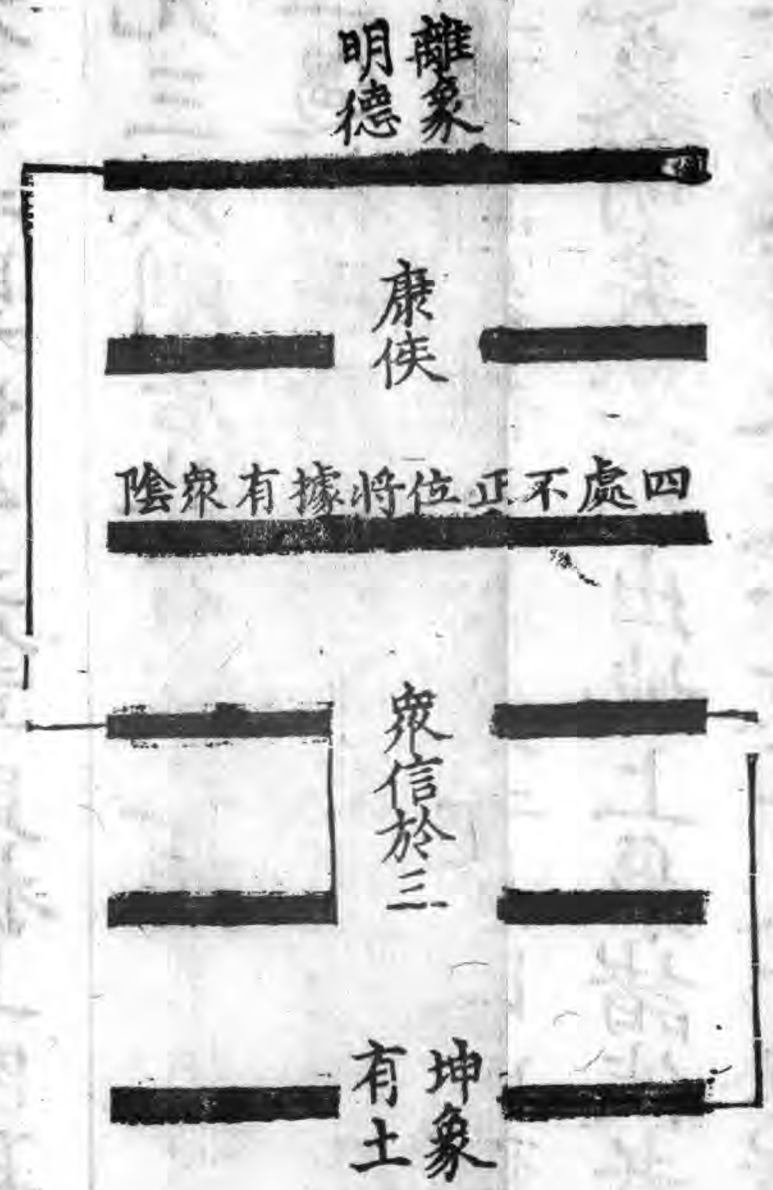 離象
明德
康侯
四處不正位將據有衆陰
衆信於三
坤象
有土